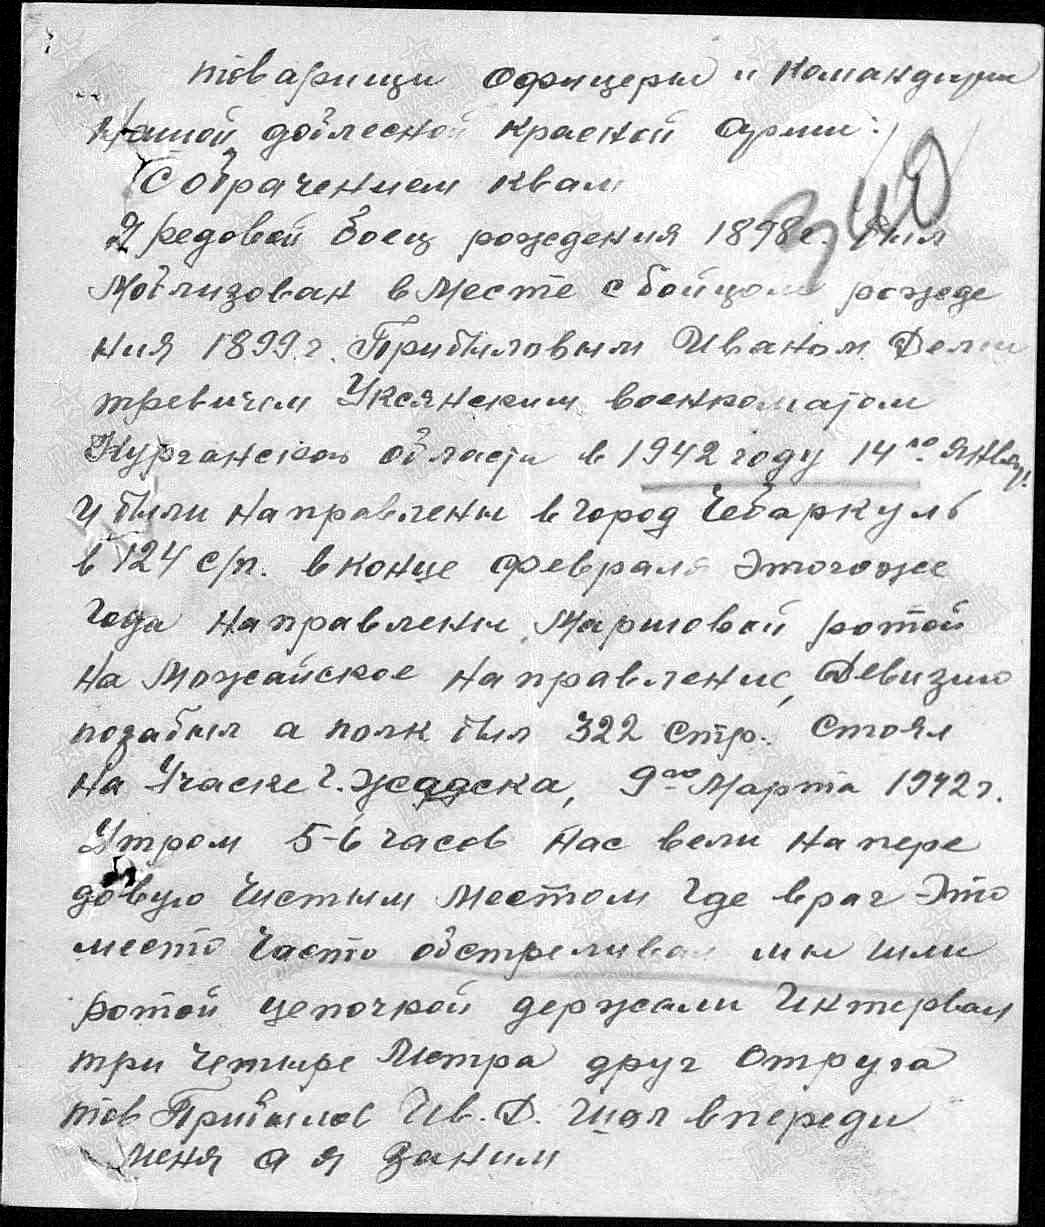 товарищи офицеры и командиры
нашой доблесной красной армии:
С обрачением квам
Я редовой боец рождения 1898г. был
340
Моблизован в Месте с бойцом рожде
ния 1899г. Прибыловым Иваном Дели
тревичем Уксянским военкоматом
Курганской области в 1942 году 14го Январ.
И были направлены в город Чебаркуль
в 124 с/п. в конце февраля этогоже
года направлены Маршовой ротой
на Можайское направление, Девизию
позабыл а полк был 322 стр. стоял
на Учаске г. Жадска, 9го Марта 1942г.
Утром 5-6 часов нас вели на пере
довую чистым местом где враг это
место часто обстреливал мы шли
ротой цепочкой держали Интервал
три четыре Метра друг отруга
тов Прибылов Ив. Д. шол впереди
меня а я заним